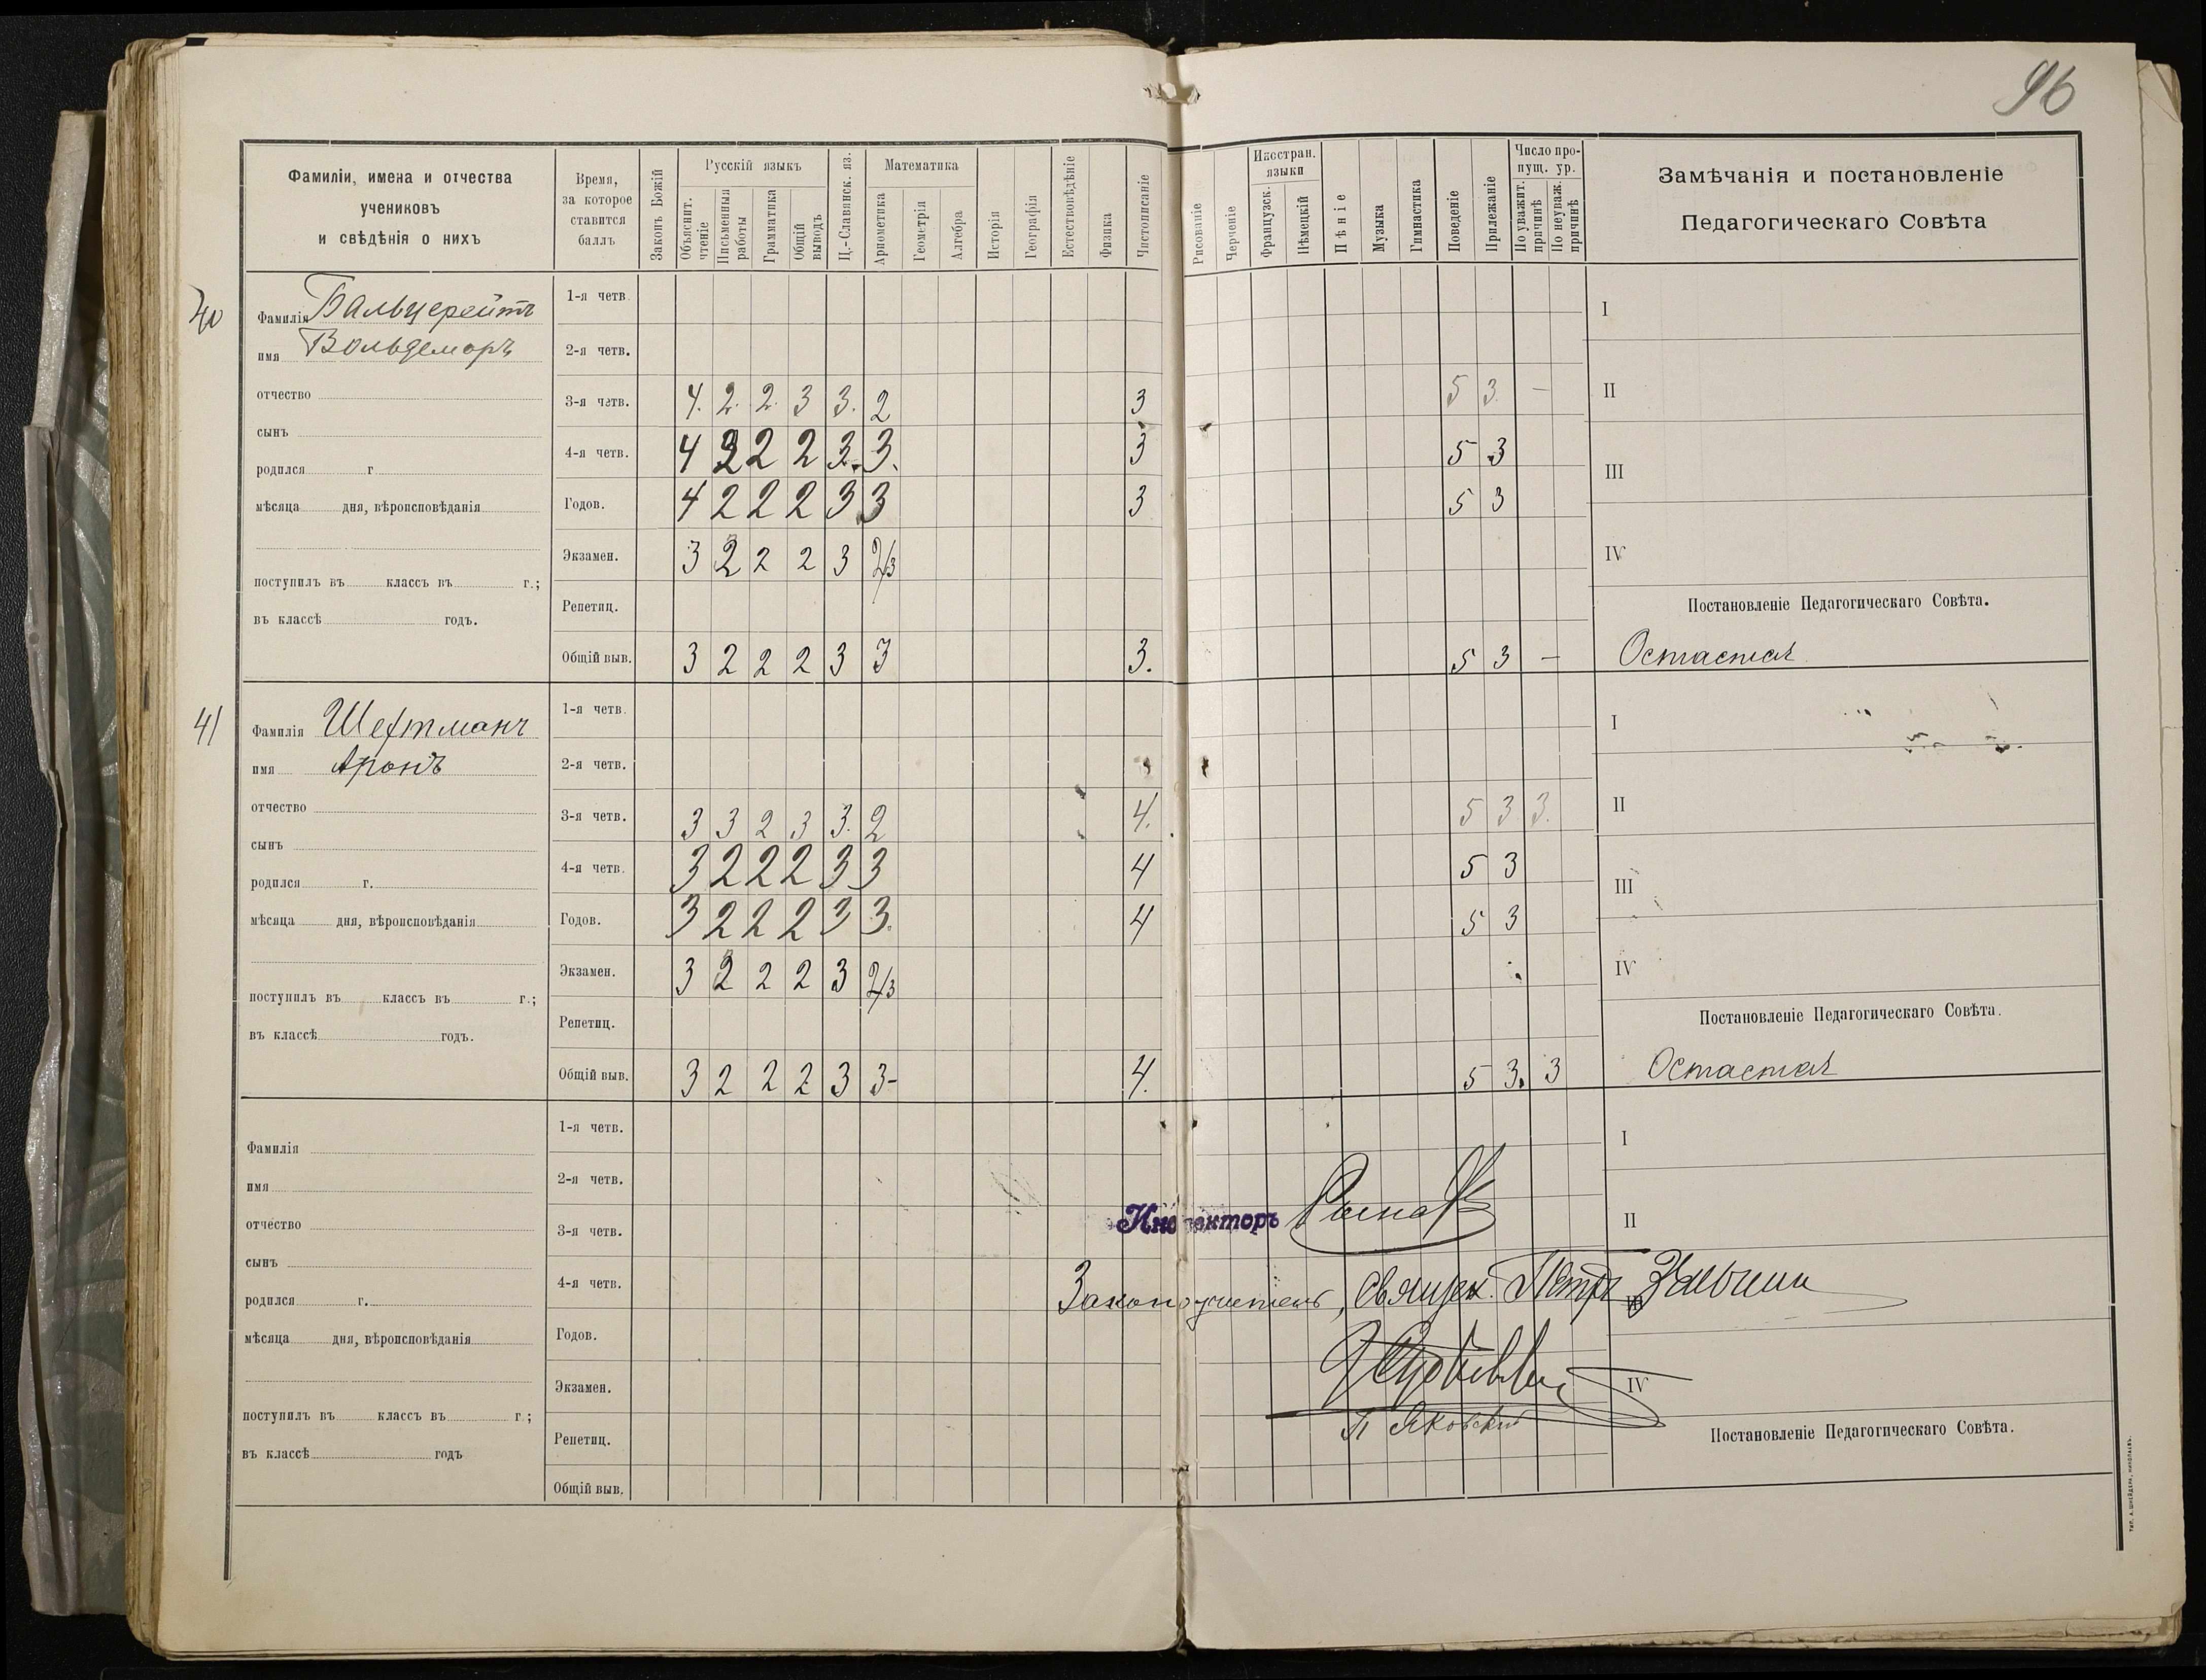 96
Фамиліи, имена и отчества
учениковъ
и свѣдѣнія о нихъ
Время,
за которое
ставится
баллъ
Законъ Божій
Русскій языкъ
Объяснит.
чтеніе
Письменныя
работы
Грамматика
Общій
выводъ
Ц.-Славянск. яз.
Математика
Ариѳметика
Геометрія
Алгебра
Исторія
Географія
Естествовѣдѣніе
Физика
Чистописаніе
Рисованіе
Черченіе
Иностран.
языки
Французск.
Нѣмецкій
Пѣніе
Музыка
Гимнастика
Поведеніе
Прилежаніе
Число про-
пущ. ур.
По уважит.
причинѣ
По неуваж.
причинѣ
Замѣчанія и постановленіе
Педагогическаго Совѣта
40
Фамилія Бальцерейтъ
имя Вольдемаръ
отчество
сынъ
родился г
мѣсяца дня, вѣроисповѣданія
поступилъ въ классъ въ г.;
въ классѣ годъ.
1-я четв.
2-я четв.
3-я четв. 4. 2. 2. 3 3. 2 3 5 3. —
4-я четв. 4 2 2 2 3. 3. 3 5 3
Годов. 4 2 2 2 3 3 3 5 3
Экзамен. 3 2 2 2 3 2/3
Репетиц.
Общій выв. 3 2 2 2 3 3 3. 5 3 —
I
II
III
IV
Постановленіе Педагогическаго Совѣта.
Остается
41
Фамилія Шехтманъ
имя Аронъ
отчество
сынъ
родился г.
мѣсяца дня, вѣроисповѣданія
поступилъ въ классъ въ г.;
въ классѣ годъ.
1-я четв.
2-я четв.
3-я четв. 3 3 2 3 3. 2 4. 5 3 3.
4-я четв. 3 2 2 2 3 3 4 5 3
Годов. 3 2 2 2 3 3. 4 5 3
Экзамен. 3 2 2 2 3 2/3
Репетиц.
Общій выв. 3 2 2 2 3 3- 4. 5 3. 3
I
II
III
IV
Постановленіе Педагогическаго Совѣта.
Остается
Фамилія
имя
отчество
сынъ
родился г.
мѣсяца дня, вѣроисповѣданія
поступилъ въ классъ въ г.;
въ классѣ годъ
1-я четв.
2-я четв.
3-я четв.
4-я четв.
Годов.
Экзамен.
Репетиц.
Общій выв.
I
II
IV
Инспекторъ
Законоучитель, Священ. Петръ
Постановленіе Педагогическаго Совѣта.
ТИП. А. ШНЕЙДЕРА, НИКОЛАЕВЪ.